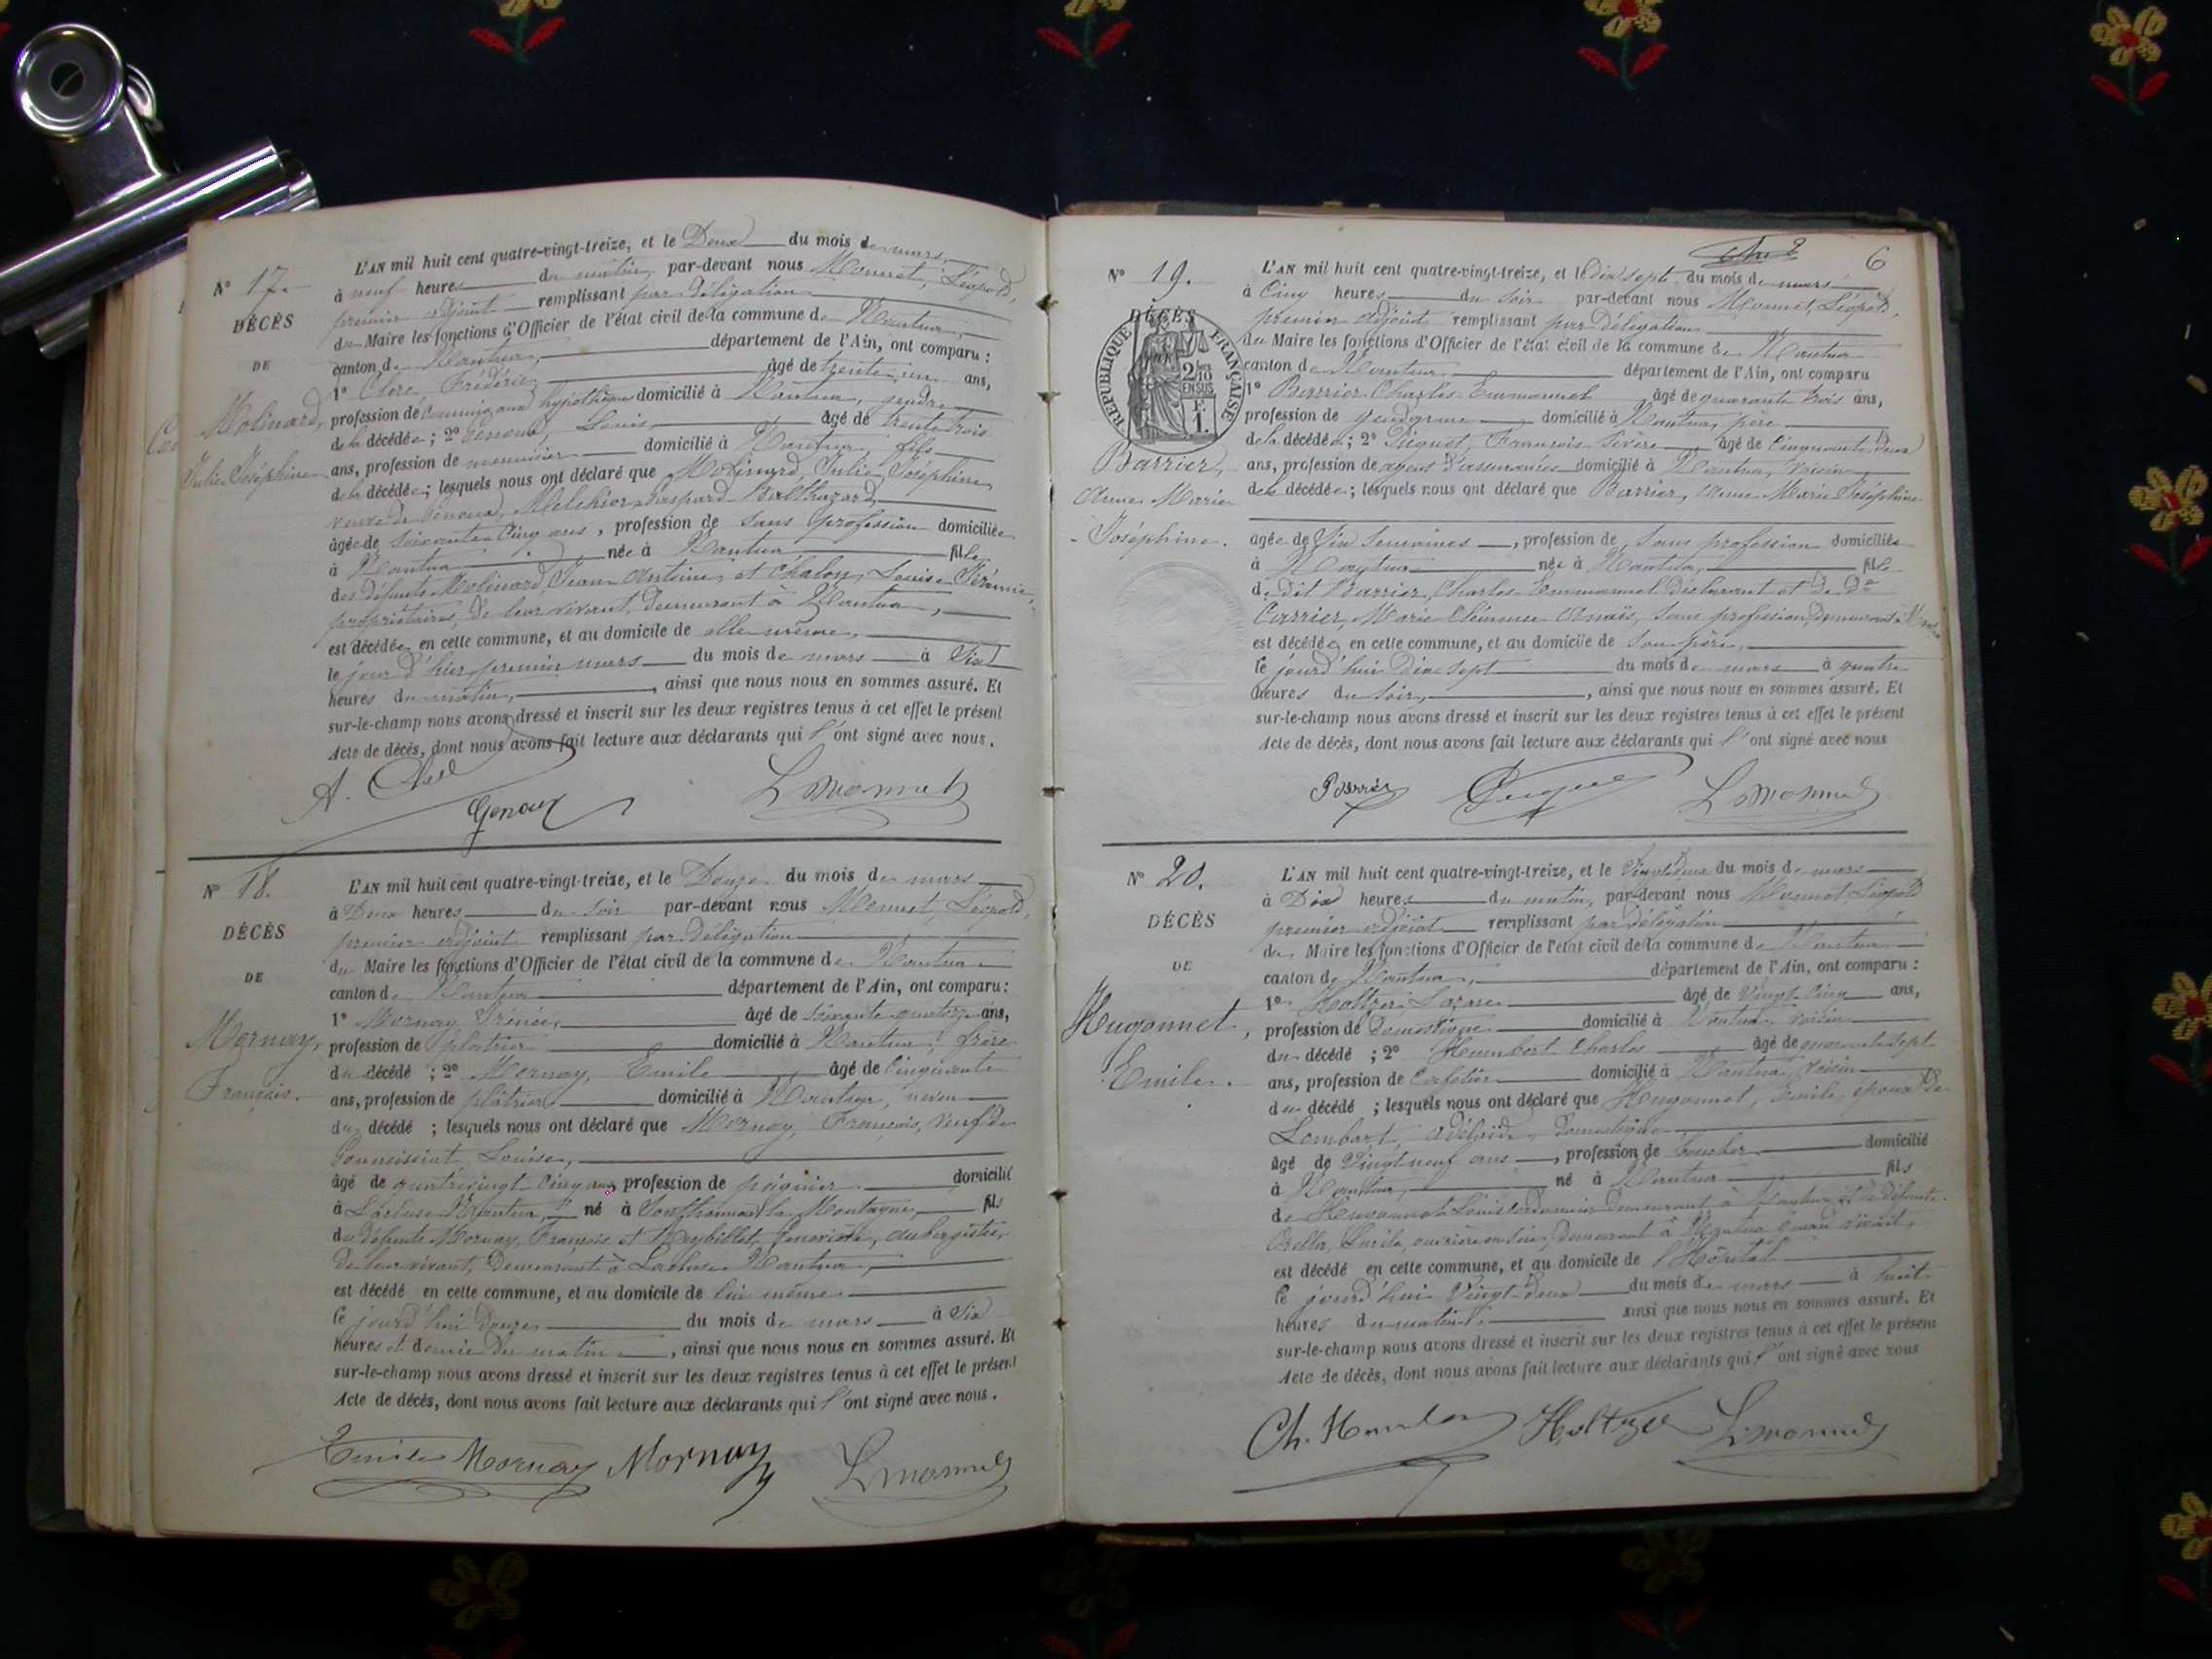 N° 17.
DÉCÈS
DE
Molinard,
Julie Joséphine.
L'AN mil huit cent quatre-vingt-treize, et le Deux du mois de mars,
à neuf heures du matin, par-devant nous Monnet, Léopold,
premier adjoint remplissant par délégation
du Maire les fonctions d'Officier de l'état civil de la commune de Nantua,
canton de Nantua, département de l'Ain, ont comparu :
1° Clerc Frédéric âgé de trente un ans,
profession de domicilié à Nantua, gendre
de la décédée ; 2° Genoud, Louis, âgé de trente trois
ans, profession de menuisier domicilié à Nantua, fils
de la décédée ; lesquels nous ont déclaré que Molinard, Julie Joséphine,
veuve de Genoud, Melchior Gaspard Balthazard,
âgée de soixante cinq ans, profession de sans profession domiciliée
à Nantua née à Nantua fille
des défunts Molinard, Jean Antoine, et Chalon, Louise
propriétaires, de leur vivant, demeurant à Nantua,
est décédée en cette commune, et au domicile de elle même,
le jour d'hier premier mars du mois de mars à Six
heures du matin, ainsi que nous nous en sommes assuré. Et
sur-le-champ nous avons dressé et inscrit sur les deux registres tenus à cet effet le présent
Acte de décès, dont nous avons fait lecture aux déclarants qui l'ont signé avec nous.
Genoux L Monnet
N° 18.
DÉCÈS
DE
Mornay,
François.
L'AN mil huit cent quatre-vingt-treize, et le Douze du mois de mars
à Deux heures du soir par-devant nous Monnet, Léopold,
premier adjoint remplissant par délégation
du Maire les fonctions d'Officier de l'état civil de la commune de Nantua
canton de Nantua département de l'Ain, ont comparu :
1° Mornay, Irénée, âgé de soixante quatorze ans,
profession de plâtrier domicilié à Nantua, frère
du décédé ; 2° Mornay, Emile âgé de cinquante
ans, profession de plâtrier domicilié à Nantua, neveu
du décédé ; lesquels nous ont déclaré que Mornay, François, veuf de
Louise,
âgé de quatre-vingt cinq ans profession de peignier domicilié
à Lacluse Nantua, né à Sonthonnax la Montagne, fils
de défunts Mornay, François et Geneviève, aubergistes,
de leur vivant, demeurant à Lacluse Nantua,
est décédé en cette commune, et au domicile de lui même
le jourd'hui douze du mois de mars à Six
heures et demie du matin, ainsi que nous nous en sommes assuré. Et
sur-le-champ nous avons dressé et inscrit sur les deux registres tenus à cet effet le présent
Acte de décès, dont nous avons fait lecture aux déclarants qui l'ont signé avec nous.
Emile Mornay Mornay L Monnet
6
N° 19.
DÉCÈS
RÉPUBLIQUE FRANÇAISE
2/10 EN SUS
F. 1.
Barrier,
Anne Marie
Joséphine.
L'AN mil huit cent quatre-vingt-treize, et le dix sept du mois de mars
à Cinq heures du soir par-devant nous Monnet, Léopold,
premier adjoint remplissant par délégation
du Maire les fonctions d'Officier de l'état civil de la commune de Nantua
canton de Nantua département de l'Ain, ont comparu
1° Barrier Charles Emmanuel âgé de quarante trois ans,
profession de gendarme domicilié à Nantua, père
de la décédée ; 2° François âgé de Cinquante deux
ans, profession de agent d'assurances domicilié à Nantua, voisin
de la décédée ; lesquels nous ont déclaré que Barrier, Anne Marie Joséphine
âgée de Six semaines, profession de sans profession domiciliée
à Nantua née à Nantua, fille
de dit Barrier, Charles Emmanuel déclarant et de De
Carrier, Marie Clémence Anaïs, sans profession, demeurant à Nantua
est décédée en cette commune, et au domicile de son père,
le jourd'hui dix sept du mois de mars à quatre
heures du soir, ainsi que nous nous en sommes assuré. Et
sur-le-champ nous avons dressé et inscrit sur les deux registres tenus à cet effet le présent
Acte de décès, dont nous avons fait lecture aux déclarants qui l'ont signé avec nous
Barrier L Monnet
N° 20.
DÉCÈS
DE
Hugonnet,
Emile.
L'AN mil huit cent quatre-vingt-treize, et le Vingt deux du mois de mars
à Dix heures du matin, par-devant nous Monnet, Léopold
premier adjoint remplissant par délégation
du Maire les fonctions d'Officier de l'état civil de la commune de Nantua
canton de Nantua, département de l'Ain, ont comparu :
1° Holtzer Lazare âgé de Vingt Cinq ans,
profession de domestique domicilié à Nantua voisin
du décédé ; 2° Humbert Charles âgé de quarante sept
ans, profession de Cafetier domicilié à Nantua, voisin
du décédé ; lesquels nous ont déclaré que Hugonnet, Emile, époux de
Lombart, Adélaïde, domestique
âgé de Vingt neuf ans, profession de boucher domicilié
à Nantua, né à Nantua fils
de Hugonnet Louis demeurant à Nantua et de défunte
ouvrière en soie, demeurant à Nantua
est décédé en cette commune, et au domicile de l'Hôpital
le jourd'hui Vingt deux du mois de mars à huit
heures du matin ainsi que nous nous en sommes assuré. Et
sur-le-champ nous avons dressé et inscrit sur les deux registres tenus à cet effet le présent
Acte de décès, dont nous avons fait lecture aux déclarants qui l'ont signé avec nous
Ch. Humbert Holtzer L Monnet